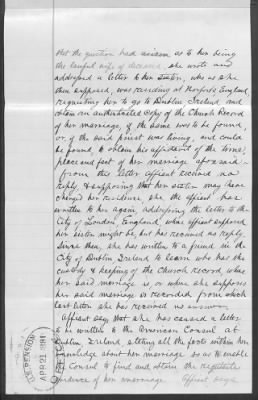 that the question had arisen as to her being
the lawful wife of deceased, she wrote and
addressed a letter to her sister, who as she
then supposed, was residing at England,
requesting her to go to Dublin Ireland and
obtain an authenticated copy of the Church Record
of her marriage, if the same were to be found,
or, if the said priest was living, and could
be found, to obtain his affidavit of the time,
place and fact of her marriage aforesaid -
from this letter affiant received no
reply, & supposing that her sister may have
changed her residence, she the affiant has
written to her again addressing the letter to the
City of London, England, where affiant supposed
her sister might be, but has received no reply.
Since then, she has written to a friend in the
City of Dublin Ireland to learn who has the
custody & keeping of the Church record, where
her said marriage is, or where she supposes
her said marriage is recorded, from which
last letter she has received no answer.
Affiant says, that she has caused a letter
to be written to the American Consul at
Dublin Ireland, stating all the facts within her
knowledge about her marriage so as to enable
Consul to find and obtain the requisite
evidence of her marriage. Affiant says
PENSION
APR 21 1891